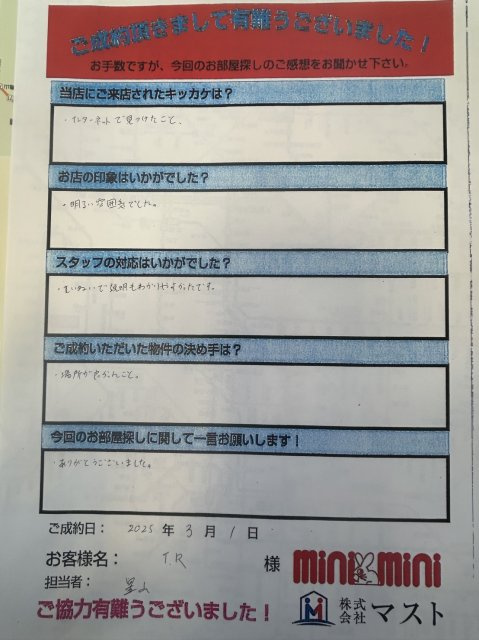 ご成約頂きまして有難うございました！
お手数ですが、今回のお部屋探しのご感想をお聞かせ下さい。
当店にご来店されたキッカケは？
・インターネットで見つけたこと、
お店の印象はいかがでした？
・明るい雰囲気でした。
スタッフの対応はいかがでした？
・ていねいで説明もわかりやすかったです。
ご成約いただいた物件の決め手は？
・場所が良かったこと。
今回のお部屋探しに関して一言お願いします！
・ありがとうございました。
ご成約日： 2025 年 3 月 1 日
お客様名： T.R 様
担当者：
mini mini
ご協力有難うございました！
株式会社 マスト